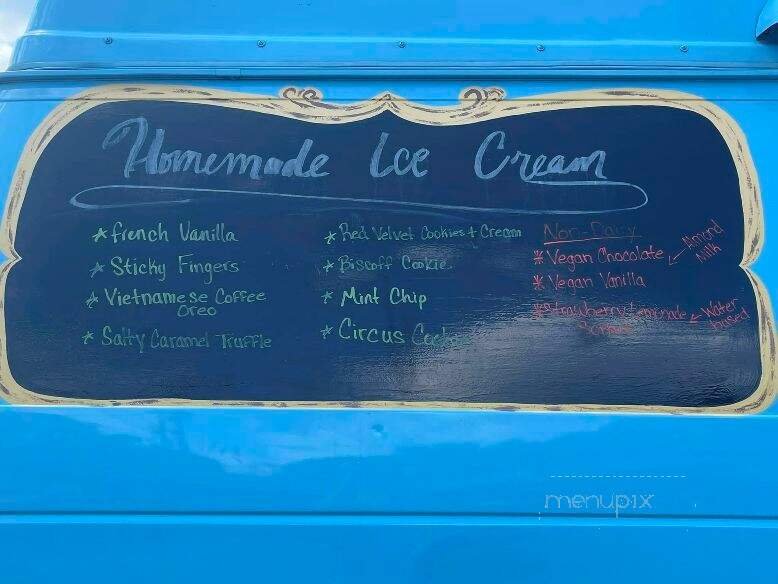 Homemade Ice Cream
* French Vanilla
* Sticky Fingers
* Vietnamese Coffee
Oreo
* Salty Caramel Truffle
* Red Velvet Cookies + Cream
* Biscoff Cookie
* Mint Chip
* Circus
Non-Dairy
* Vegan Chocolate
* Vegan Vanilla
* Strawberry Lemonade
Almond
Milk
Water
based
menupix